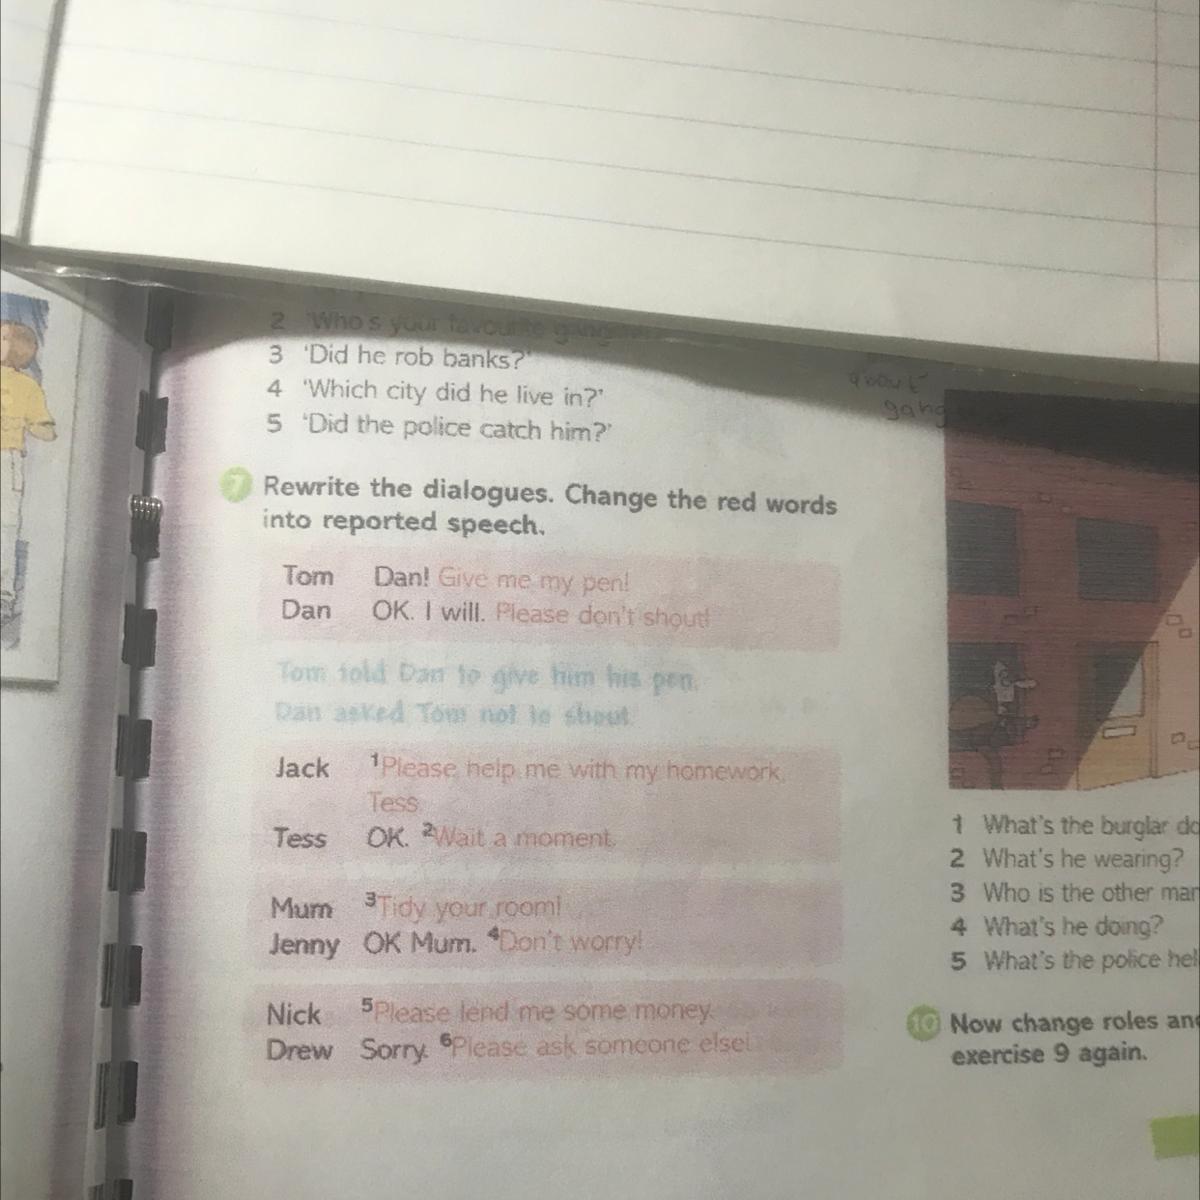 2 'Who's your favourite
3 'Did he rob banks?'
4 'Which city did he live in?'
5 'Did the police catch him?'
about
gang
7 Rewrite the dialogues. Change the red words
into reported speech.
Tom Dan! Give me my pen!
Dan OK. I will. Please don't shout!
Tom told Dan to give him his pen.
Dan asked Tom not to shout.
Jack 1Please help me with my homework,
Tess.
Tess OK. 2Wait a moment.
Mum 3Tidy your room!
Jenny OK Mum. 4Don't worry!
Nick 5Please lend me some money.
Drew Sorry. 6Please ask someone else!
1 What's the burglar do
2 What's he wearing?
3 Who is the other mar
4 What's he doing?
5 What's the police hel
10 Now change roles and
exercise 9 again.